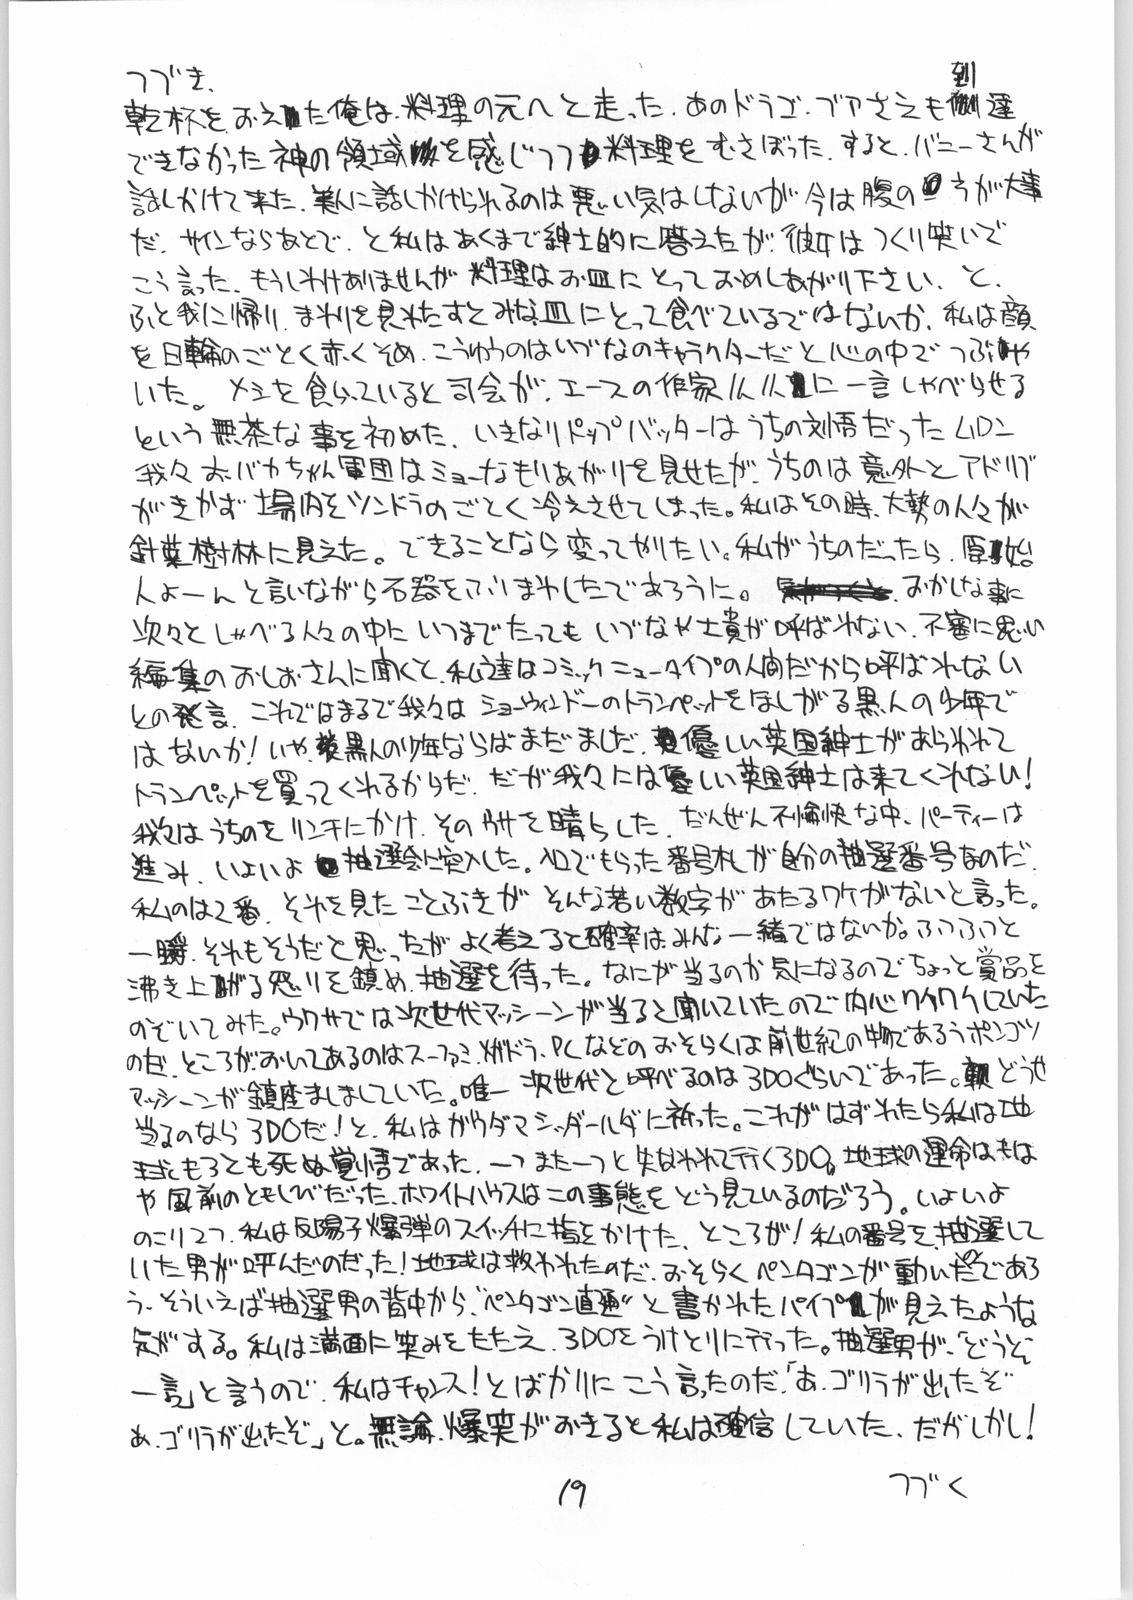 つづき、
乾杯をおえた俺は、料理の元へと走った。あのドラゴ・ブアさえも到達
できなかった神の領域を感じつつ料理をむさぼった。すると、バニーさんが
話しかけて来た。美人に話しかけられるのは悪い気はしないが今は腹の方が大事
だ。サインならあとで、と私はあくまで紳士的に答えたが、彼女はつくり笑いで
こう言った。もうしわけありませんが料理はお皿にとっておめしあがり下さい、と、
ふと我に帰り、まわりを見わたすとみな皿にとって食べているではないか、私は顔
を日輪のごとく赤くそめ、こうゆうのはいづなのキャラクターだと心の中でつぶや
いた。メシを食らっていると司会が、エースの作家ハハに一言しゃべらせる
という無茶な事を初めた、いきなりトップバッターはうちの刘悟だったムロン
我々おバカちゃん軍団はミョーなもりあがりを見せたが、うちのは意外とアドリブ
がきかず場内をツンドラのごとく冷えさせてしまった。私はその時、大勢の人々が
針葉樹林に見えた。できることなら変ってやりたい。私がうちのだったら、原始
人よーんと言いながら石器をふりまわしたであろうに。おかしな事に
次々としゃべる人々の中にいつまでたってもいづなや士貴が呼ばれない、不審に思い
編集のおしおさんに聞くと、私達はコミックニュータイプの人間だから呼ばれない
との発言、これではまるで我々はショーウィンドーのトランペットをほしがる黒人の少年で
はないか！いや、黒人の少年ならばまだましだ、優しい英国紳士があらわれて
トランペットを買ってくれるからだ、だが我々には優しい英国紳士は来てくれない！
我々はうちのをリンチにかけ、そのウサを晴らした、だんぜん不愉快な中、パーティーは
進み、いよいよ抽選会に突入した。入口でもらった番号札が自分の抽選番号なのだ、
私のは2番、それを見たことぶきがそんな若い数字があたるワケがないと言った。
一瞬、それもそうだと思ったがよく考えると確率はみんな一緒ではないか。ふつふつと
沸き上がる怒りを鎮め、抽選を待った。なにが当るのか気になるのでちょっと賞品を
のぞいてみた。ウワサでは次世代マッシーンが当ると聞いていたので内心ワクワクしていた
のだ、ところが、おいてあるのはスーファミ、メガドラ、PCなどのおそらくは前世紀の物であろうポンコツ
マッシーンが鎮座ましましていた。唯一次世代と呼べるのは3DOぐらいであった。どうせ
当るのなら3DOだ！と、私はガウダマ・シッダールダに祈った。これがはずれたら私は地
球ともろとも死ぬ覚悟であった、一つまた一つと失なわれて行く3DO。地球の運命はもは
や風前のともしびだった、ホワイトハウスはこの事態をどう見ているのだろう。いよいよ
のこり2つ、私は反陽子爆弾のスイッチに指をかけた、ところが！私の番号を、抽選して
いた男が呼んだのだった！地球は救われたのだ、おそらくペンタゴンが動いたのであろ
う、そういえば抽選男の背中から、“ペンタゴン直通”と書かれたパイプが見えたような
気がする。私は満面に笑みをたたえ、3DOをうけとりに行った。抽選男が、「どうぞ
一言」と言うので、私はチャンス！とばかりにこう言ったのだ、「あ、ゴリラが出たぞ
あ、ゴリラが出たぞ」と。無論、爆笑がおきると私は確信していた、だがしかし！
つづく
19